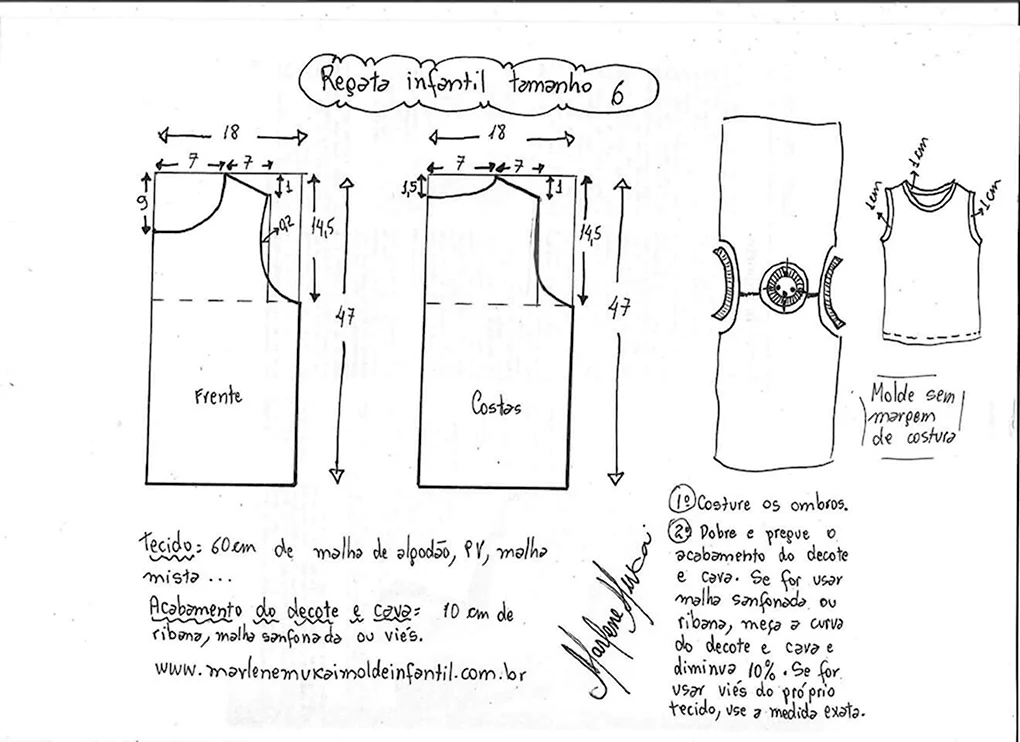 Regata infantil tamanho 6
18
7 7
9
1
0,2
14,5
47
Frente
18
7 7
1,5
1
14,5
47
Costas
1cm
1cm
1cm
Molde sem
margem
de costura
Tecido: 60cm de malha de algodão, PV, malha
mista...
Acabamento do decote e cava: 10 cm de
ribana, malha sanfonada ou viés.
www.marlenemukaimoldeinfantil.com.br
Marlene Mukai
1º Costure os ombros.
2º Dobre e pregue o
acabamento do decote
e cava. Se for usar
malha sanfonada ou
ribana, meça a curva
do decote e cava e
diminua 10%. Se for
usar viés do próprio
tecido, use a medida exata.